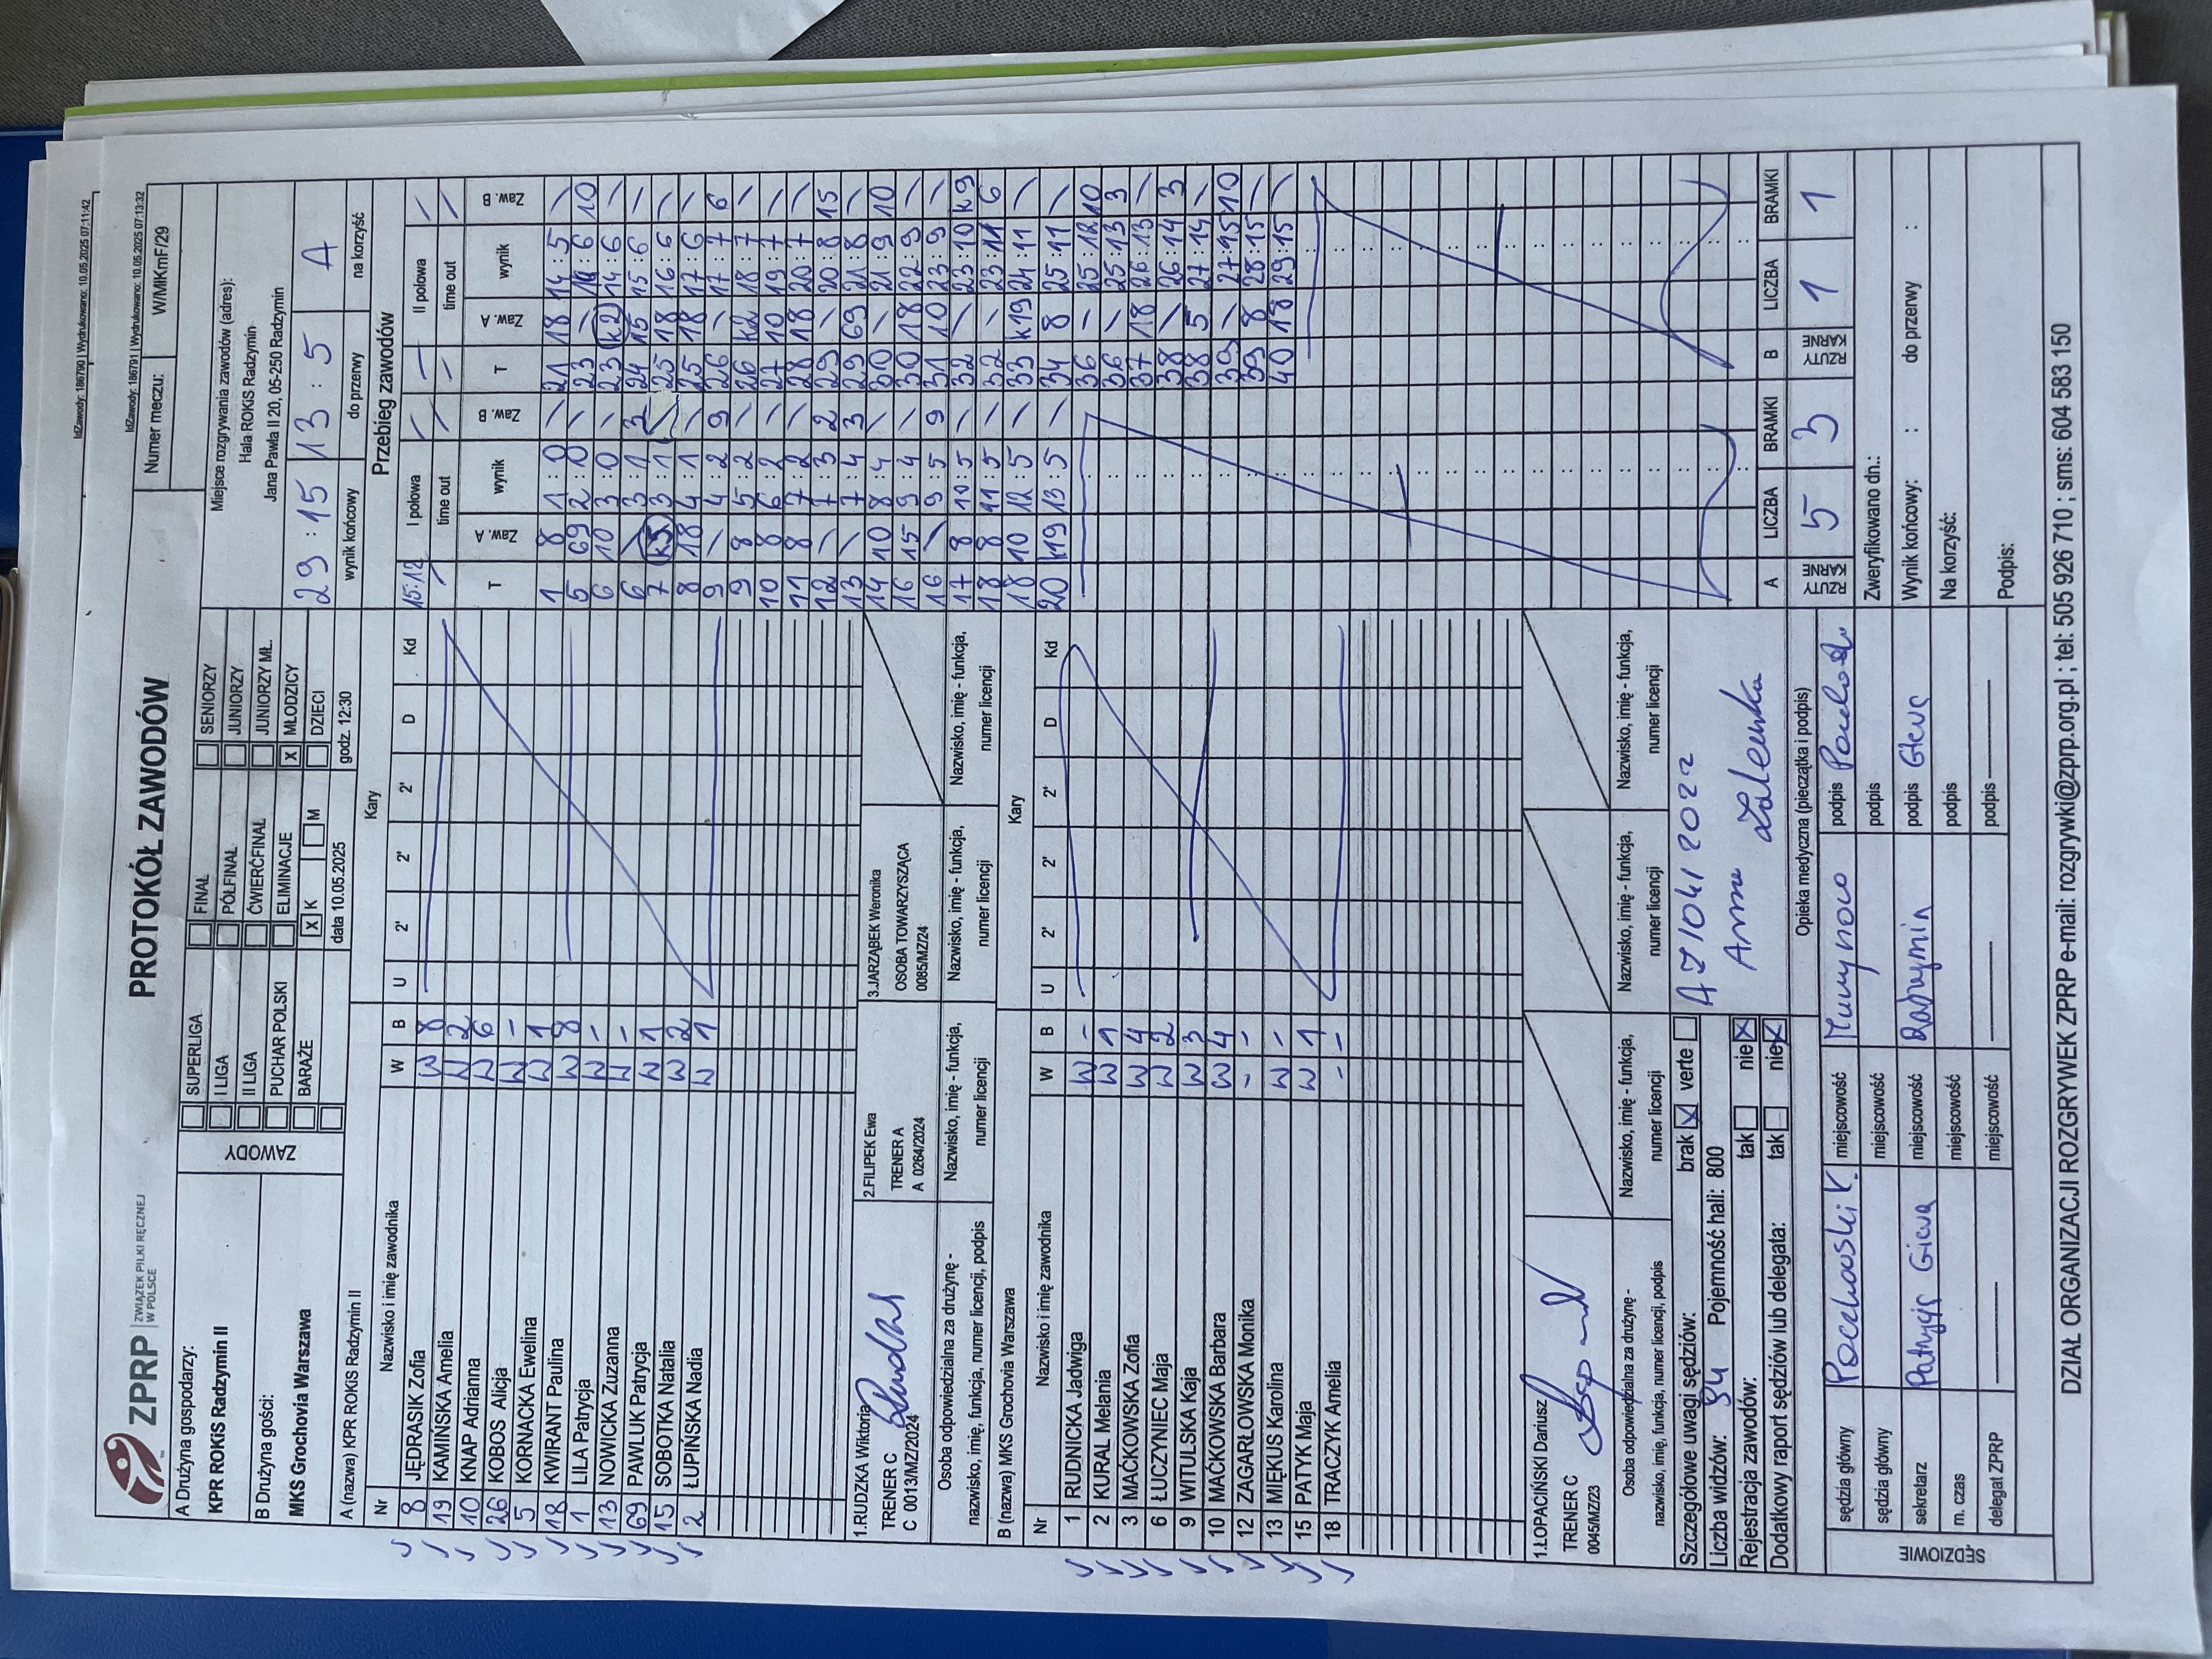 IdZawody: 186790 | Wydrukowano: 10.05.2025 07:11:42
IdZawody: 186791 | Wydrukowano: 10.05.2025 07:13:32
ZPRP ZWIĄZEK PIŁKI RĘCZNEJ W POLSCE
PROTOKÓŁ ZAWODÓW
Numer meczu: W/MKmF/29
A Drużyna gospodarzy:
KPR ROKiS Radzymin II
B Drużyna gości:
MKS Grochovia Warszawa
ZAWODY
SUPERLIGA FINAŁ SENIORZY
I LIGA PÓŁFINAŁ JUNIORZY
II LIGA ĆWIERĆFINAŁ JUNIORZY MŁ.
PUCHAR POLSKI ELIMINACJE X MŁODZICY
BARAŻE X K M DZIECI
data 10.05.2025 godz. 12:30
Miejsce rozgrywania zawodów (adres):
Hala ROKiS Radzymin
Jana Pawła II 20, 05-250 Radzymin
29 : 15 13 : 5 A
wynik końcowy do przerwy na korzyść
A (nazwa) KPR ROKiS Radzymin II
Kary
Nr Nazwisko i imię zawodnika W B U 2' 2' 2' D Kd
8 JĘDRASIK Zofia W 8
19 KAMIŃSKA Amelia W 2
10 KNAP Adrianna W 6
26 KOBOS Alicja W -
5 KORNACKA Ewelina W 1
18 KWIRANT Paulina W 8
1 LILA Patrycja W -
13 NOWICKA Zuzanna W -
69 PAWLUK Patrycja W 1
15 SOBOTKA Natalia W 2
2 ŁUPIŃSKA Nadia W 1
1.RUDZKA Wiktoria
TRENER C
C 0013/MZ/2024
2.FILIPEK Ewa
TRENER A
A 0264/2024
3.JARZĄBEK Weronika
OSOBA TOWARZYSZĄCA
0085/MZ/24
Osoba odpowiedzialna za drużynę -
nazwisko, imię, funkcja, numer licencji, podpis
Nazwisko, imię - funkcja,
numer licencji
Nazwisko, imię - funkcja,
numer licencji
Nazwisko, imię - funkcja,
numer licencji
Nazwisko, imię - funkcja,
numer licencji
B (nazwa) MKS Grochovia Warszawa
Kary
Nr Nazwisko i imię zawodnika W B U 2' 2' 2' D Kd
1 RUDNICKA Jadwiga W -
2 KURAL Melania W 1
3 MAĆKOWSKA Zofia W 4
6 ŁUCZYNIEC Maja W 2
9 WITULSKA Kaja W 3
10 MAĆKOWSKA Barbara W 4
12 ZAGARŁOWSKA Monika - -
13 MIĘKUS Karolina W -
15 PATYK Maja W 1
18 TRACZYK Amelia - -
1.ŁOPACIŃSKI Dariusz
TRENER C
0045/MZ/23
Osoba odpowiedzialna za drużynę -
nazwisko, imię, funkcja, numer licencji, podpis
Nazwisko, imię - funkcja,
numer licencji
Nazwisko, imię - funkcja,
numer licencji
Nazwisko, imię - funkcja,
numer licencji
Szczegółowe uwagi sędziów: brak X verte
Liczba widzów: 94 Pojemność hali: 800
Rejestracja zawodów: tak nie X
Dodatkowy raport sędziów lub delegata: tak nie X
Anna Zalewska
Opieka medyczna (pieczątka i podpis)
Przebieg zawodów
I połowa II połowa
15:12
time out time out
T Zaw. A wynik Zaw. B
1 8 1:0 /
5 69 2:0 /
6 10 3:0 /
6 / 3:1 3
7 k5 3:1 /
8 18 4:1 /
9 / 4:2 9
9 8 5:2 /
10 8 6:2 /
11 8 7:2 /
12 / 7:3 2
13 / 7:4 3
14 10 8:4 /
16 15 9:4 /
16 / 9:5 9
17 8 10:5 /
18 8 11:5 /
18 10 12:5 /
20 k19 13:5 /
T Zaw. A wynik Zaw. B
21 18 14:5 /
23 / 14:6 10
23 k2 14:6 /
24 15 15:6 /
25 18 16:6 /
25 18 17:6 /
26 / 17:7 6
26 k2 18:7 /
27 10 19:7 /
28 18 20:7 /
29 / 20:8 15
29 69 21:8 /
30 / 21:9 10
30 18 22:9 /
31 10 23:9 /
32 / 23:10 k9
32 / 23:11 6
33 k19 24:11 /
34 8 25:11 /
36 / 25:12 10
36 / 25:13 3
37 18 26:13 /
38 / 26:14 3
38 5 27:14 /
39 / 27:15 10
39 8 28:15 /
40 18 29:15 /
A LICZBA BRAMKI B LICZBA BRAMKI
RZUTY KARNE 5 3 RZUTY KARNE 1 1
Zweryfikowano dn.:
Wynik końcowy: : do przerwy :
Na korzyść:
Podpis:
SĘDZIOWIE
sędzia główny miejscowość podpis
sędzia główny miejscowość podpis
sekretarz miejscowość Radzymin podpis
m. czas miejscowość podpis
delegat ZPRP miejscowość podpis
DZIAŁ ORGANIZACJI ROZGRYWEK ZPRP e-mail: rozgrywki@zprp.org.pl ; tel: 505 926 710 ; sms: 604 583 150